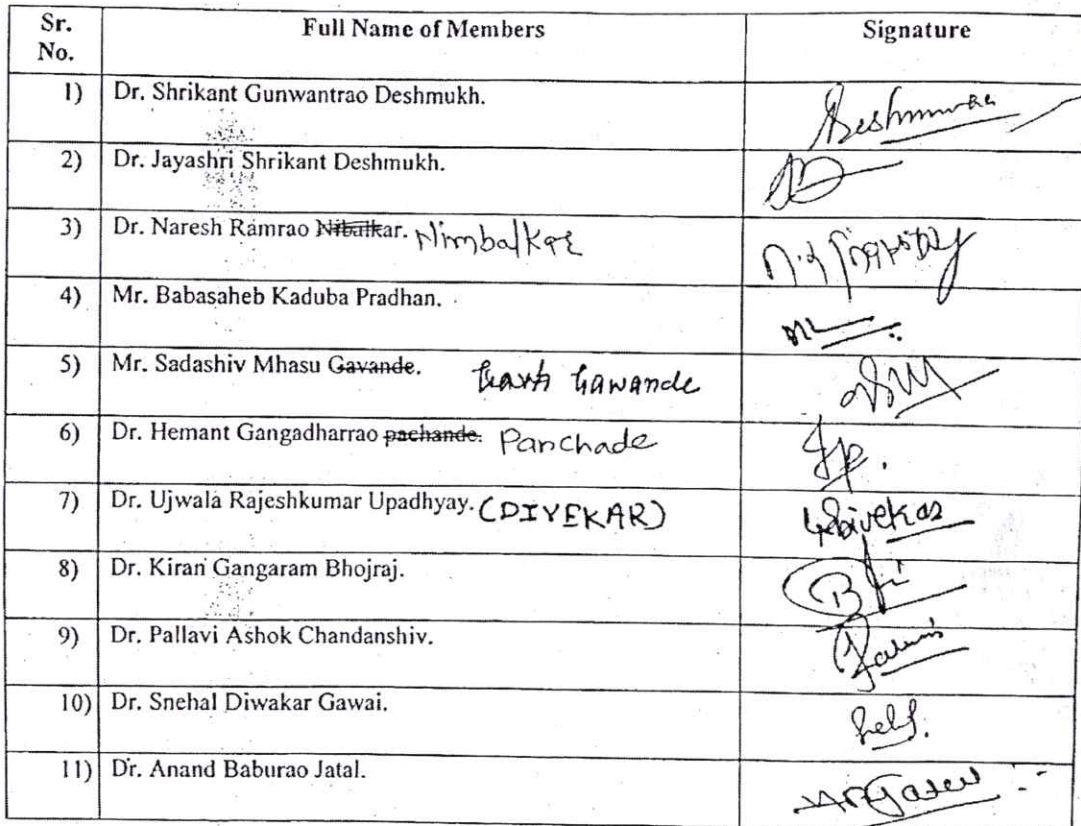 Sr. No. Full Name of Members Signature
1) Dr. Shrikant Gunwantrao Deshmukh. Deshmukh
2) Dr. Jayashri Shrikant Deshmukh.
3) Dr. Naresh Ramrao Nibalkar. Nimbalkar
4) Mr. Babasaheb Kaduba Pradhan.
5) Mr. Sadashiv Mhasu Gavande. Gawande
6) Dr. Hemant Gangadharrao pachande. Panchade
7) Dr. Ujwala Rajeshkumar Upadhyay. (DIVEKAR) Divekar
8) Dr. Kiran Gangaram Bhojraj.
9) Dr. Pallavi Ashok Chandanshiv.
10) Dr. Snehal Diwakar Gawai.
11) Dr. Anand Baburao Jatal.